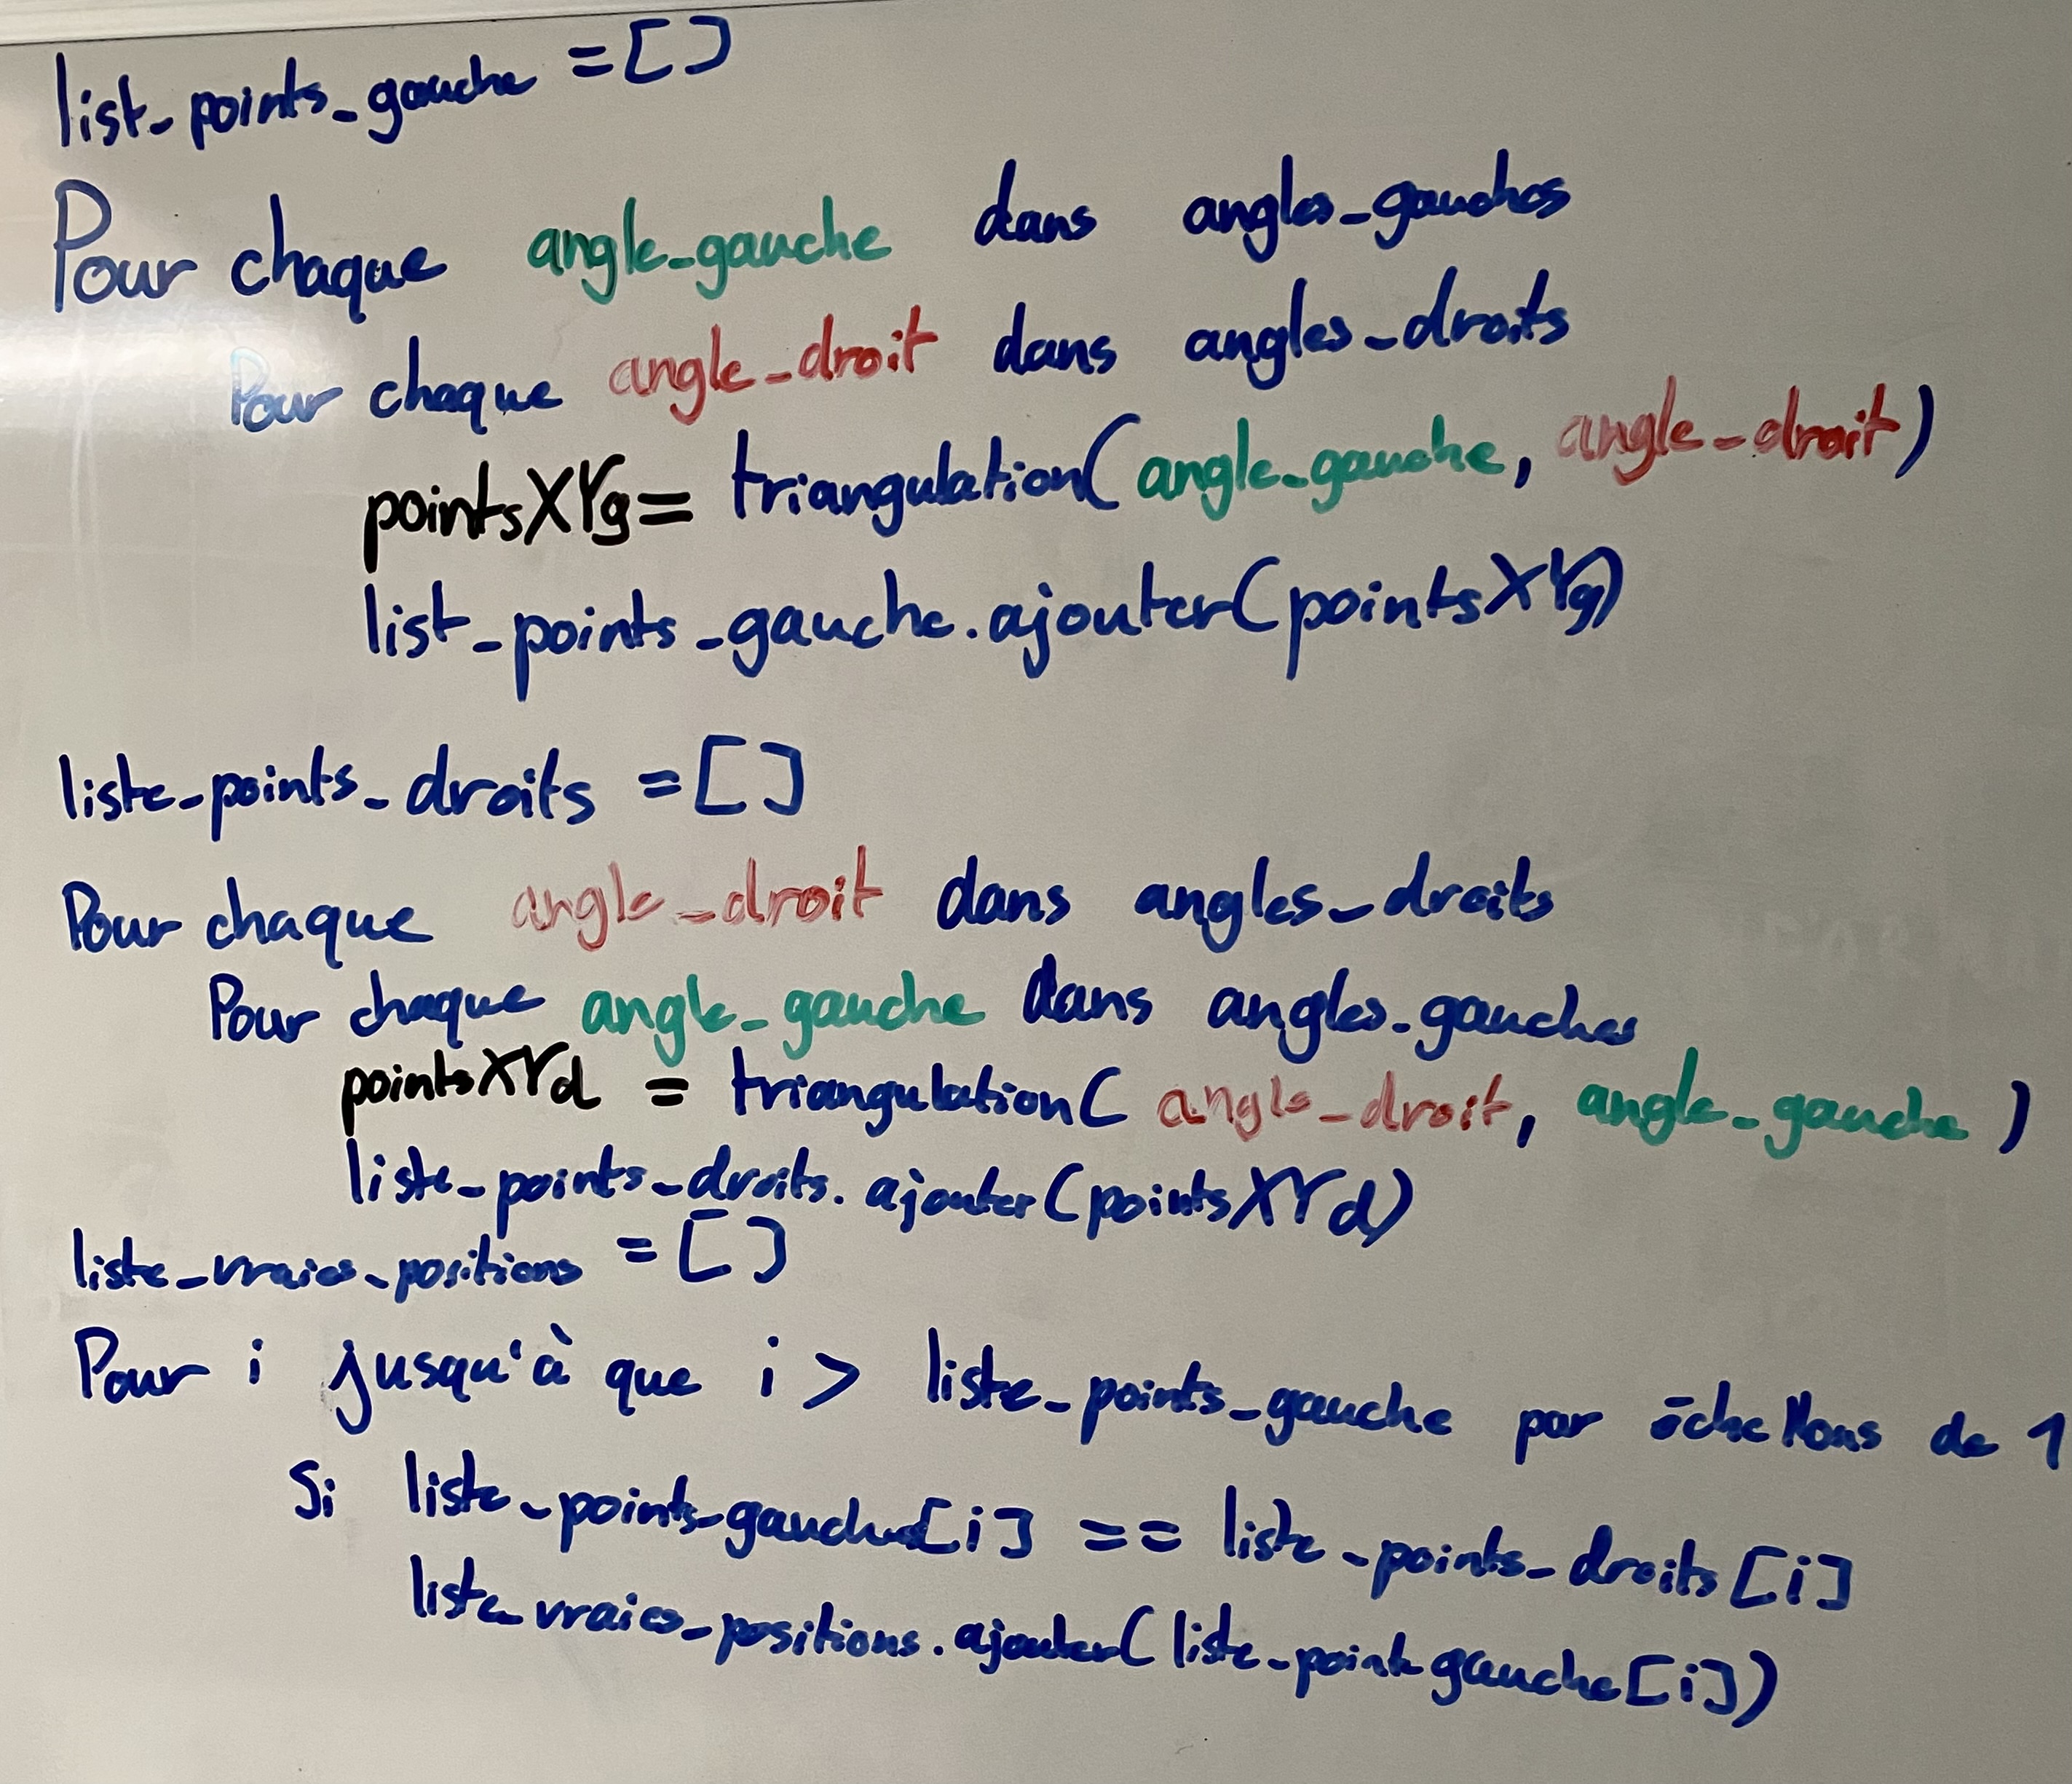 list_points_gauche = []
Pour chaque angle_gauche dans angles_gauches
Pour chaque angle_droit dans angles_droits
pointsXYg = triangulation(angle_gauche, angle_droit)
list_points_gauche.ajouter(pointsXYg)
liste_points_droits = []
Pour chaque angle_droit dans angles_droits
Pour chaque angle_gauche dans angles_gauches
pointsXYd = triangulation(angle_droit, angle_gauche)
liste_points_droits.ajouter(pointsXYd)
liste_vraies_positions = []
Pour i jusqu'à que i > liste_points_gauche par échellons de 1
Si liste_points_gauche[i] == liste_points_droits[i]
liste_vraies_positions.ajouter(liste_point gauche[i])